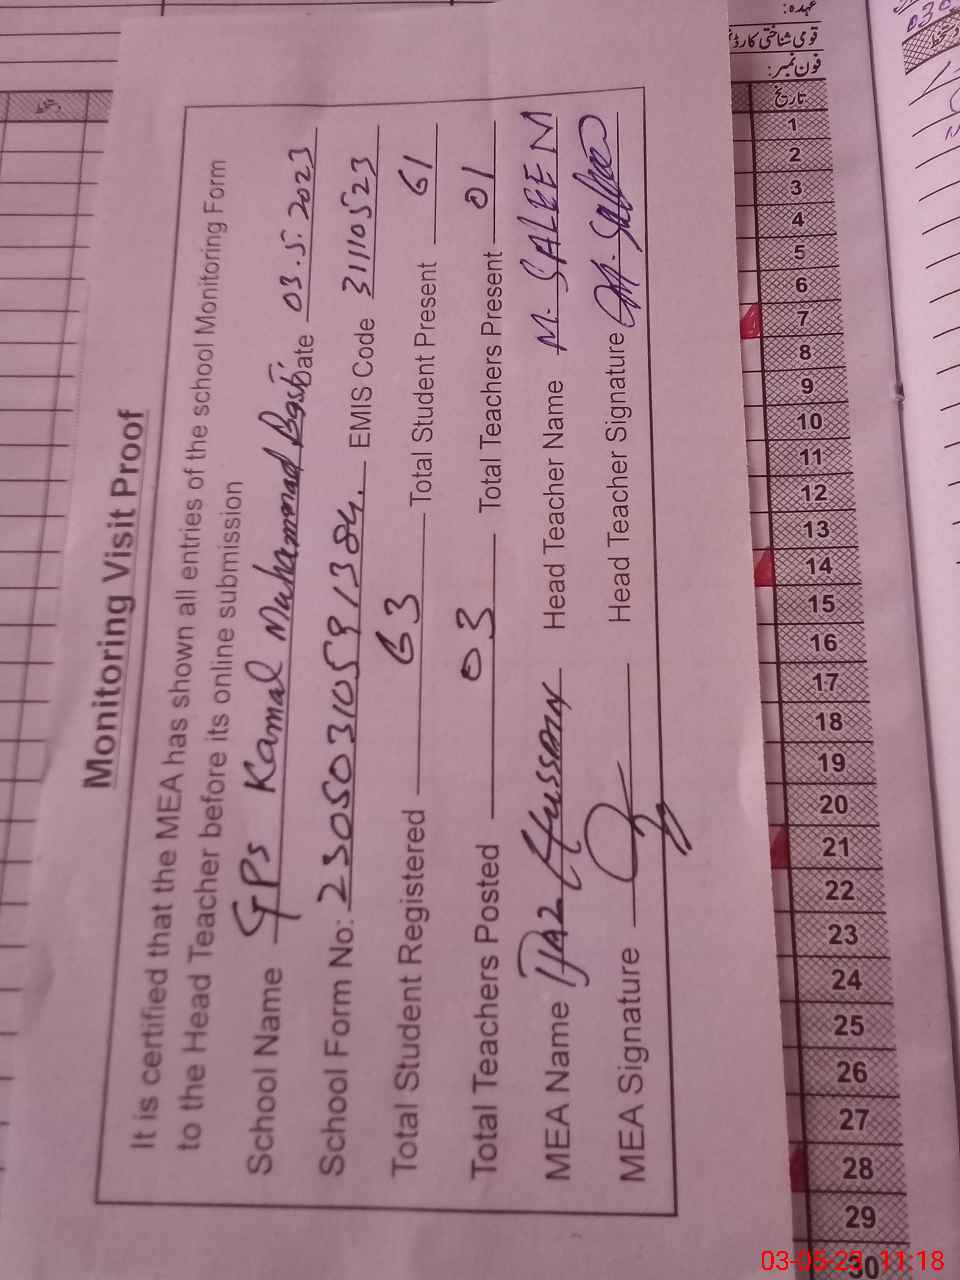 Monitoring Visit Proof
It is certified that the MEA has shown all entries of the school Monitoring Form
to the Head Teacher before its online submission
School Name GPS Kamal Muhammad Basti Date 03.5.2023
School Form No: 23050310591384. EMIS Code 31110523
Total Student Registered 63 Total Student Present 61
Total Teachers Posted 03 Total Teachers Present 01
MEA Name Ijaz Hussain Head Teacher Name M. SALEEM
MEA Signature Head Teacher Signature M. Saleem
عہدہ:
قومی شناختی کارڈ
فون نمبر:
تاریخ
1
2
3
4
5
6
7
8
9
10
11
12
13
14
15
16
17
18
19
20
21
22
23
24
25
26
27
28
29
30
دستخط
03-05-23 11:18